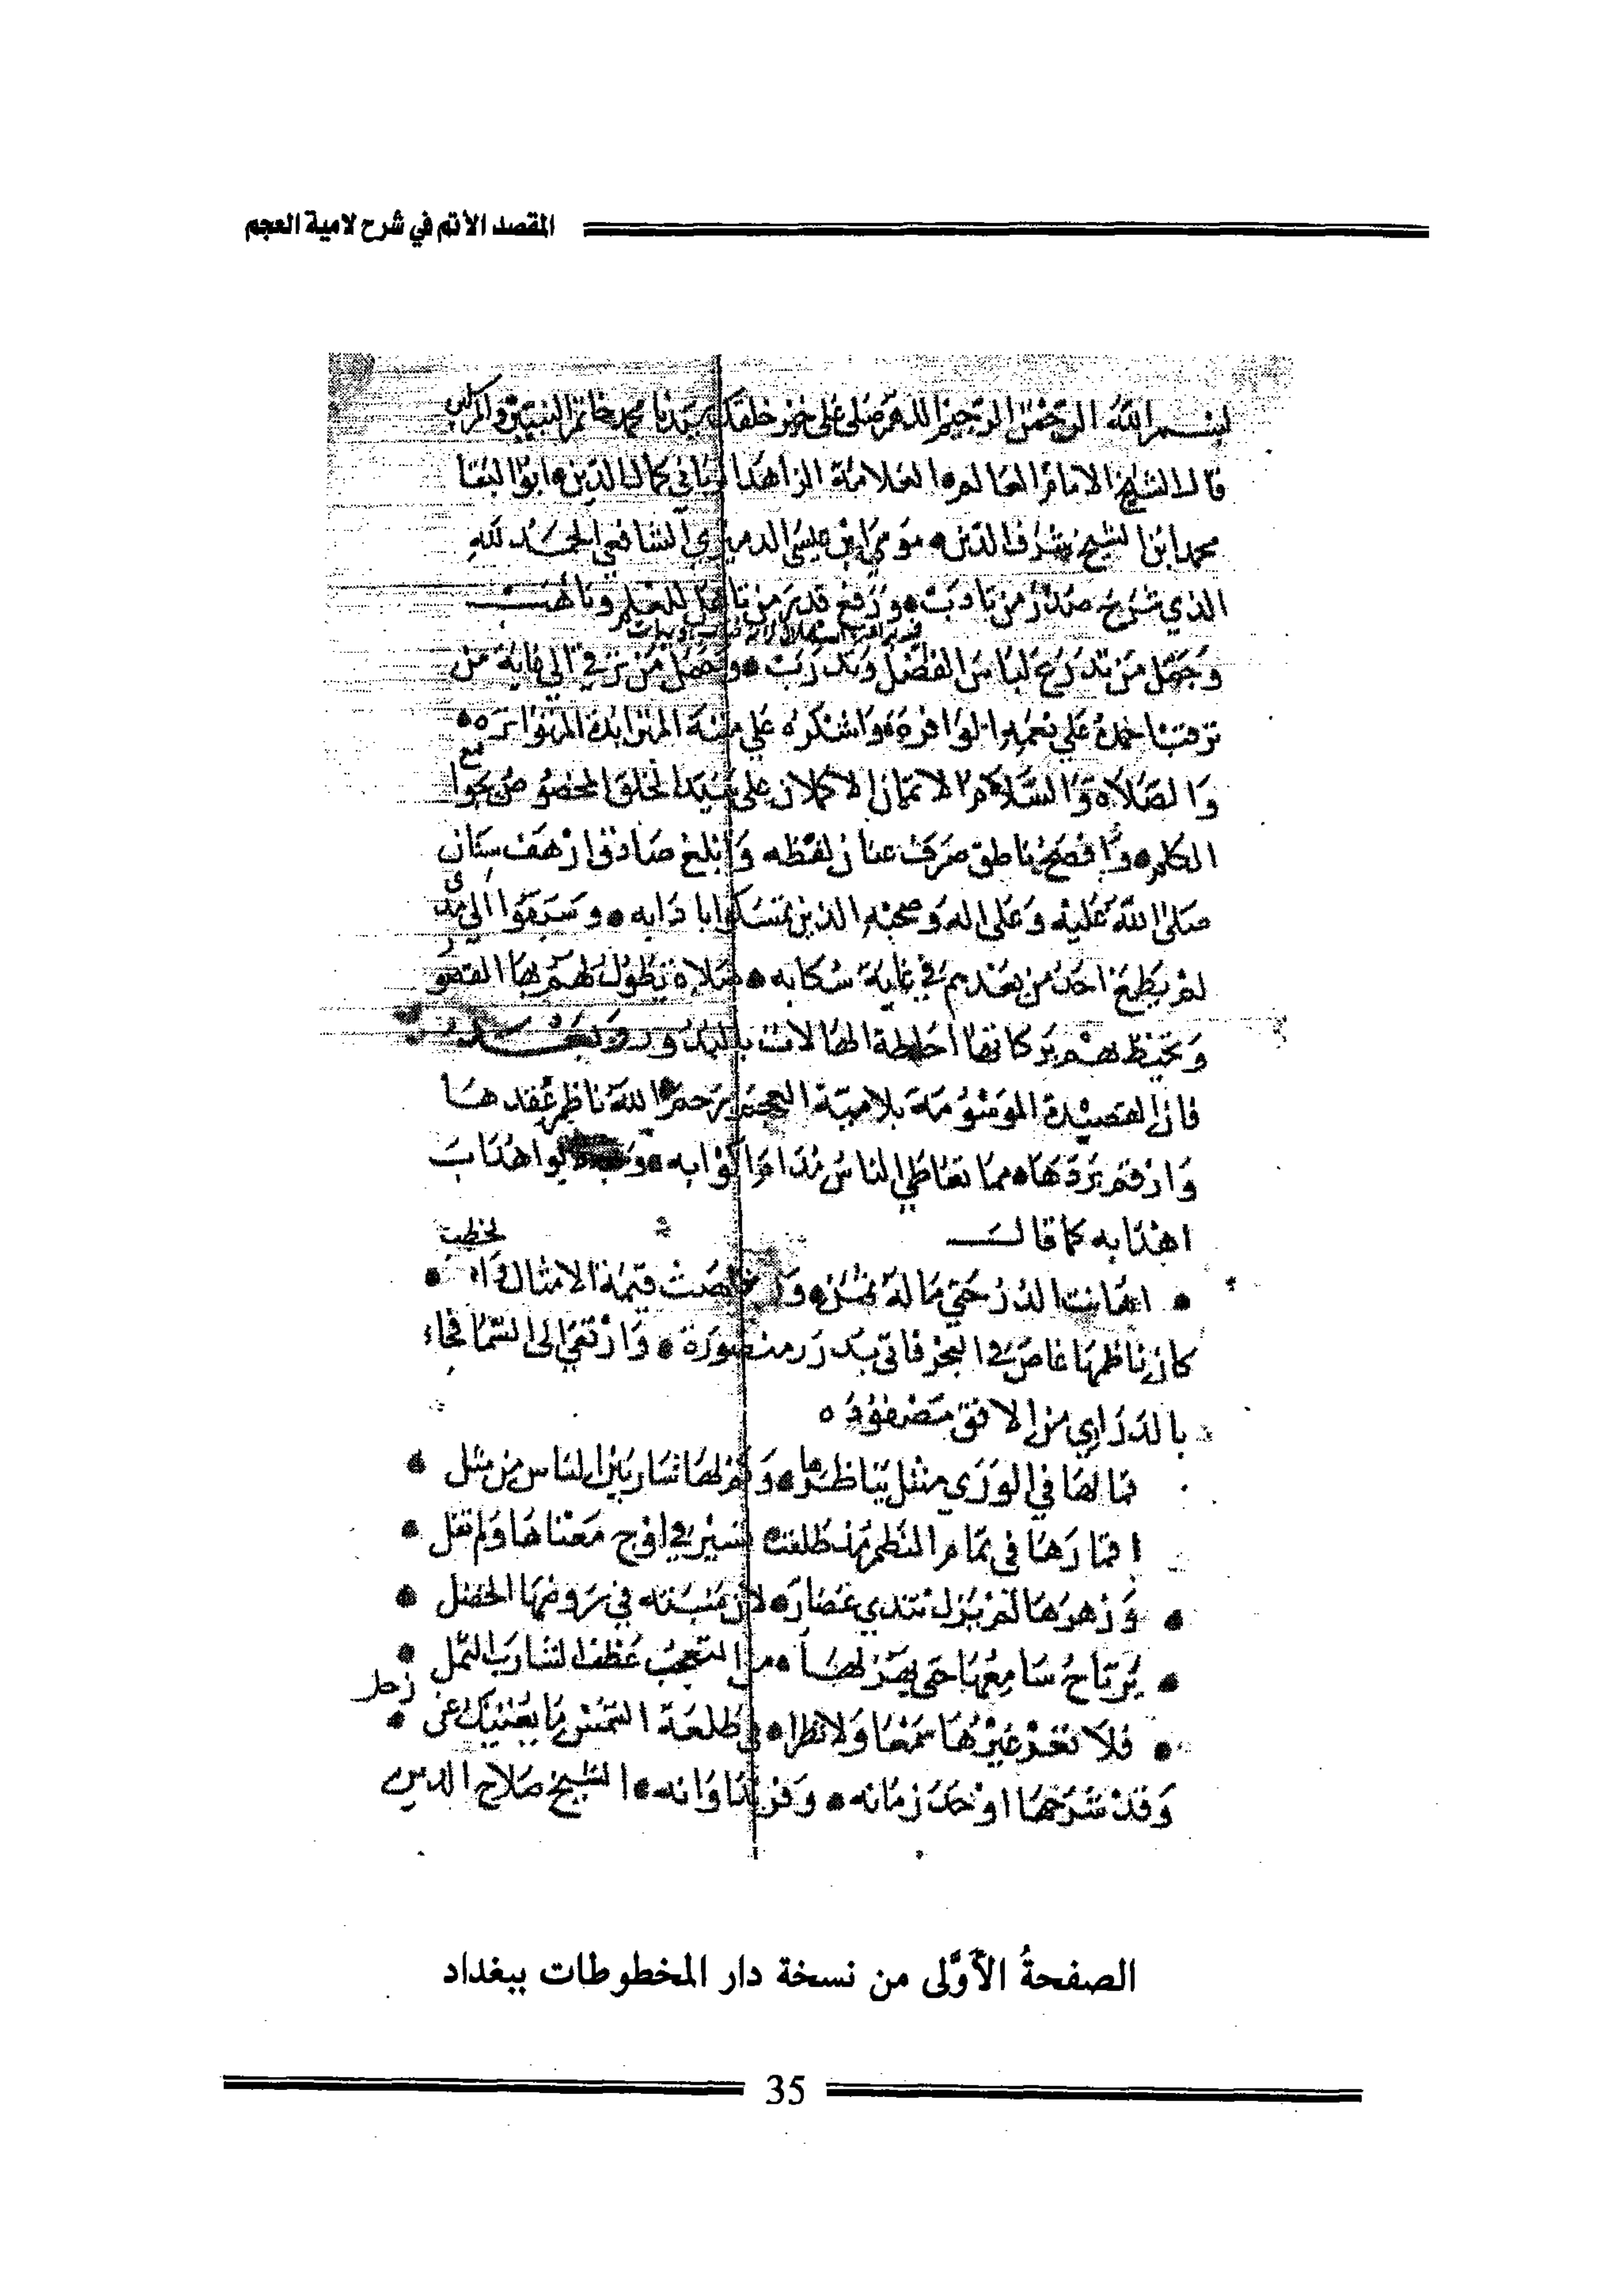 المقصد الأتم في شرح لامية العجم
بسم الله الرحمن الرحيم اللهم صلى على خير خلقك سيدنا محمد خاتم النبيين
قال الشيخ الامام العالم العلامة الزاهد الرباني كمال الدين ابو البقا
محمد ابن الشيخ شرف الدين موسى ابن عيسى الدميري الشافعي الحمد لله
الذي شرح صدر من تادب ورفع قدر من تاهل للعلم وتاهب
وجمل من تدرع لباس الفضل وتدرب من ترقي الي غاية من
علي نعمه الوافرة واشكره علي مننه المتزايدة المتواترة
والصلاة والسلام الاتمان الاكملان على سيد الخلق المخصوص بجوامع
الكلم وافصح ناطق صرف عنان لفظه وابلغ صادق ارهف سنان
صلى الله عليه وعلى اله وصحبه الذين تمسكوا بادابه وسبقوا الي مدى
لم يطمع احد من بعدهم في غاية سكابه صلاة تطول لهم بها القصور
وتحيط بهم بركاتها احاطة الهالات بالبدور وبعد
فان القصيدة الموسومة بلامية العجم رحم الله ناظم عقدها
وارقم بردها مما تعاطي الناس مدام اكوابه
اهدابه كما قال
الدر حتي ماله ثمن قيمة الامثال
كان ناظمها غاص في البحر فاتى بدرر منضورة وارتقى الى السما فجاء
بالدراري من الافق مضفوره
فما لها في الورى مثل يناظرها وكم لها سار بين الناس من مثل
اقمارها في تمام النظم مذ طلعت تسير في اوج معناها ولم تفل
وزهرها لم يزل تندي غضارته لان منبته في روضها الخضل
يرتاح سامعها حتى يهز لها من التعجب عطف الشارب الثمل
فلا تعر غيرها سمعا ولا نظرا في طلعة الشمس ما يغنيك عن زحل
وقد شرحها اوحد زمانه وفريد اوانه الشيخ صلاح الدين
الصفحةُ الأَوَّلى من نسخة دار المخطوطات ببغداد
35